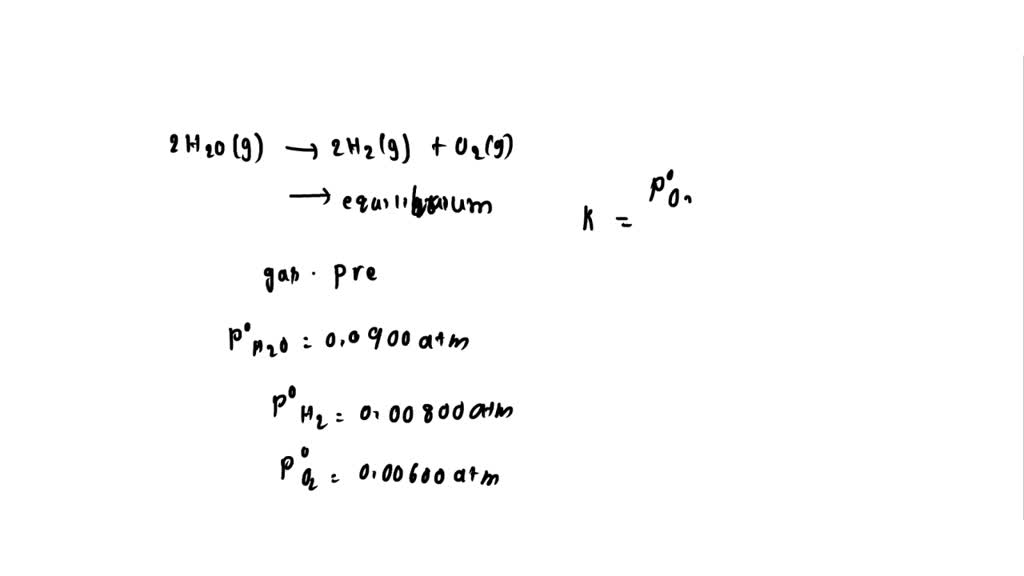 2H2O(g) → 2H2(g) + O2(g)
→ equilibrium
K = P°O2
gas . pre
P°H2O = 0.0900 atm
P°H2 = 0.00800 atm
P°O2 = 0.00600 atm